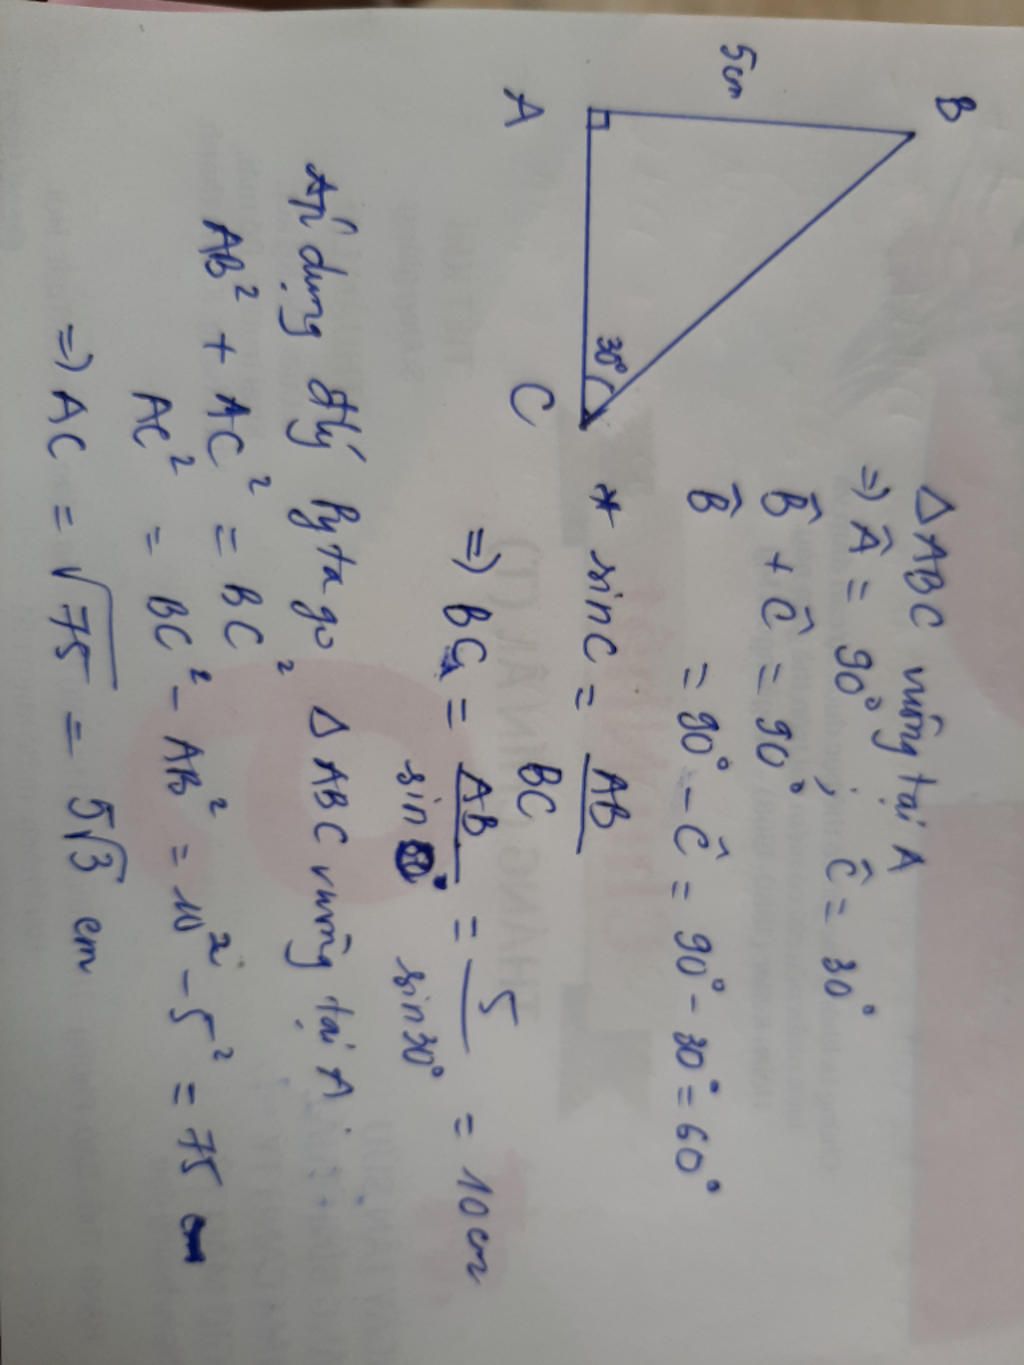 B
5cm
A
30°
C
△ABC vuông tại A
=) Â = 90° ; Ĉ = 30°
B̂ + Ĉ = 90°
B̂ = 90° - Ĉ = 90° - 30° = 60°
* sin C = AB / BC
=) BC = AB / sin = 5 / sin30° = 10cm
Áp dụng đlý Pytago △ ABC vuông tại A
AB² + AC² = BC²
AC² = BC² - AB² = 10² - 5² = 75
=) AC = √75 = 5√3 cm